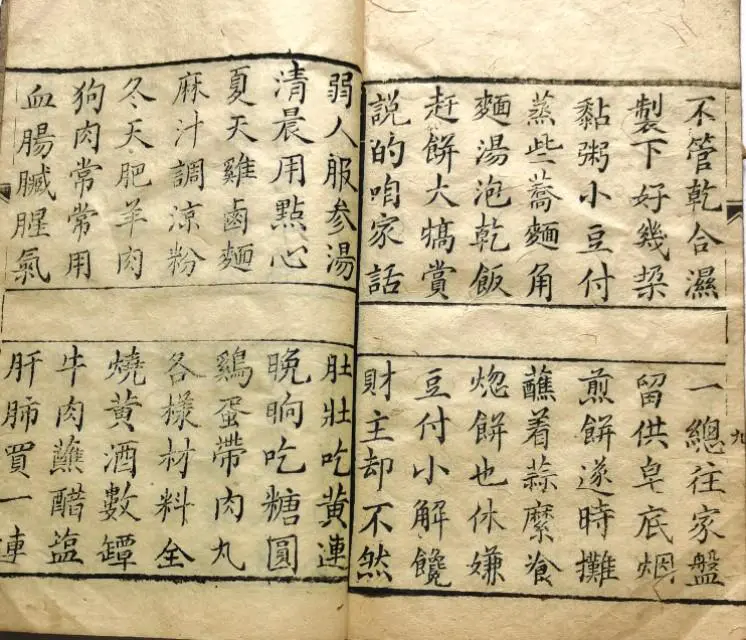 不管乾合濕
一總往家盤
製下好幾垜
留供皂底烟
黏粥小豆付
煎餅遂時攤
蒸些蕎麵角
蘸着蒜縻飡
麵湯泡乾飯
焧餅也休嫌
赶餅大犒賞
豆付小解饞
説的咱家話
財主却不然
九
弱人服参湯
肚壯吃黄連
清晨用點心
晚晌吃糖圓
夏天雞鹵麵
鷄蛋帶肉丸
麻汁調涼粉
各樣材料全
冬天肥羊肉
燒黄酒數罈
狗肉常常用
牛肉蘸醋塩
血腸臟腥氣
肝肺買一連